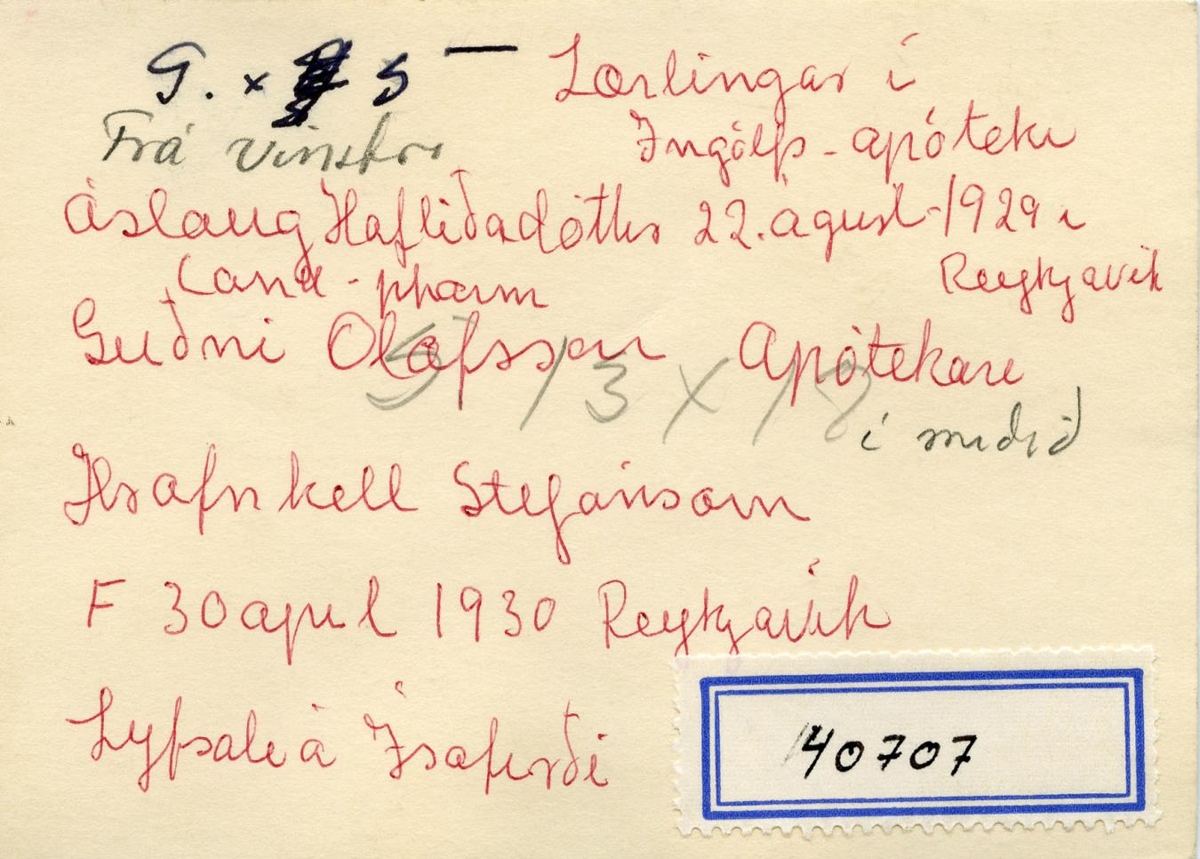 G. x S — Lærlingar í
Frá vinstri Ingólfs-apóteki
Áslaug Hafliðadóttir 22. ágúst-1929 í
Cand-pharm Reykjavik
Guðni Olafsson Apótekari
9/13 x 18
í miðið
Hrafnkell Stefánsson
F 30 apríl 1930 Reykjavík
Lyfsali á Ísafirði
40707